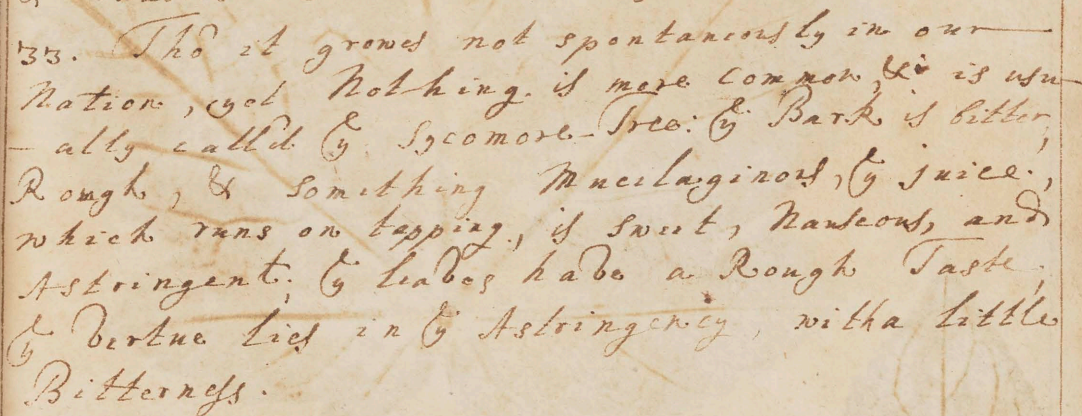 33. Tho it grows not spontaneously in our
Nation, yet Nothing is more Common, & is usu
- ally call'd ye Sycomore-Tree: ye Bark is bitter,
Rough, & something Mucilaginous, ye juice,
which runs on tapping, is sweet, Nauseous, and
Astringent; ye leaves have a Rough Taste,
ye vertue lies in ye Astringency, with a little
Bitterness.